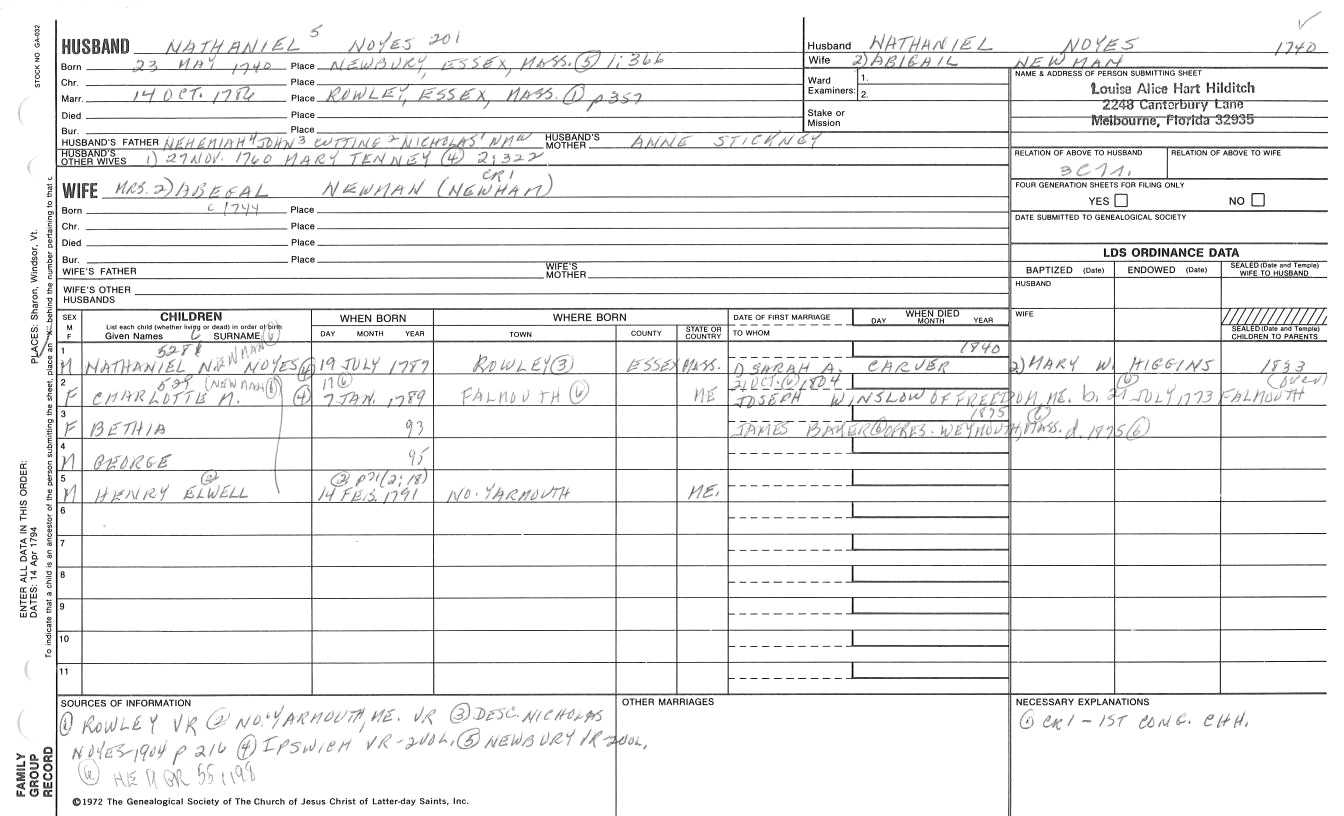 STOCK NO GA-032
HUSBAND NATHANIEL 5 NOYES 201
Born 23 MAY 1740 Place NEWBURY, ESSEX, MASS. (5) 1:366
Chr. Place
Marr. 14 OCT. 1786 Place ROWLEY, ESSEX, MASS. (1) p 357
Died Place
Bur. Place
HUSBAND'S FATHER NEHEMIAH 4 JOHN 3 CUTTING 2 NICHOLAS 1 HUSBAND'S MOTHER ANNE STICKNEY
HUSBAND'S OTHER WIVES 1) 27 NOV. 1760 MARY TENNEY (4) 2:322
CR1
WIFE MRS. 2) ABEGAL NEWMAN (NEWHAM)
Born c 1744 Place
Chr. Place
Died Place
Bur. Place
WIFE'S FATHER WIFE'S MOTHER
WIFE'S OTHER HUSBANDS
Husband NATHANIEL NOYES 1740
Wife 2) ABIGAIL NEWMAN
Ward Examiners: 1.
2.
Stake or Mission
NAME & ADDRESS OF PERSON SUBMITTING SHEET
Louise Alice Hart Hilditch
2248 Canterbury Lane
Melbourne, Florida 32935
RELATION OF ABOVE TO HUSBAND RELATION OF ABOVE TO WIFE
FOUR GENERATION SHEETS FOR FILING ONLY
YES NO
DATE SUBMITTED TO GENEALOGICAL SOCIETY
LDS ORDINANCE DATA
BAPTIZED (Date) ENDOWED (Date) SEALED (Date and Temple) WIFE TO HUSBAND
HUSBAND
WIFE
SEALED (Date and Temple) CHILDREN TO PARENTS
SEX M F CHILDREN WHEN BORN WHERE BORN DATE OF FIRST MARRIAGE WHEN DIED
List each child (whether living or dead) in order of birth
Given Names SURNAME DAY MONTH YEAR TOWN COUNTY STATE OR COUNTRY TO WHOM DAY MONTH YEAR
528 NEWMAN 1840
1 M NATHANIEL NOYES 19 JULY 1787 ROWLEY (3) ESSEX MASS. SARAH A. CARVER 2) MARY W. HIGGINS 1833
529 (NEWMAN (6) 17 (6) 21 OCT. (6) 1804 (6)
2 F CHARLOTTE M. (4) 7 JAN. 1789 FALMOUTH (6) ME JOSEPH WINSLOW OF FREEDOM, ME. b. 27 JULY 1773 FALMOUTH
1875 (6)
3 F BETHIA 93 JAMES BAKER (6) OF RES. WEYMOUTH, MASS. d. 1875 (6)
4 M GEORGE 95
(2) (2) p 71 (2:18)
5 M HENRY ELWELL 14 FEB. 1791 NO. YARMOUTH ME.
6
7
8
9
10
11
SOURCES OF INFORMATION
(1) ROWLEY VR (2) NO. YARMOUTH, ME. VR (3) DESC. NICHOLAS
NOYES-1904 p 216 (4) IPSWICH VR-2VOL. (5) NEWBURY VR-2VOL.
(6) 55:198
OTHER MARRIAGES
NECESSARY EXPLANATIONS
(1) CR1 - 1ST CONG. CHH.
©1972 The Genealogical Society of The Church of Jesus Christ of Latter-day Saints, Inc.
FAMILY GROUP RECORD
ENTER ALL DATA IN THIS ORDER:
DATES: 14 Apr 1794
PLACES: Sharon, Windsor, Vt.
To indicate that a child is an ancestor of the person submitting the sheet, place an "X" behind the number pertaining to that c